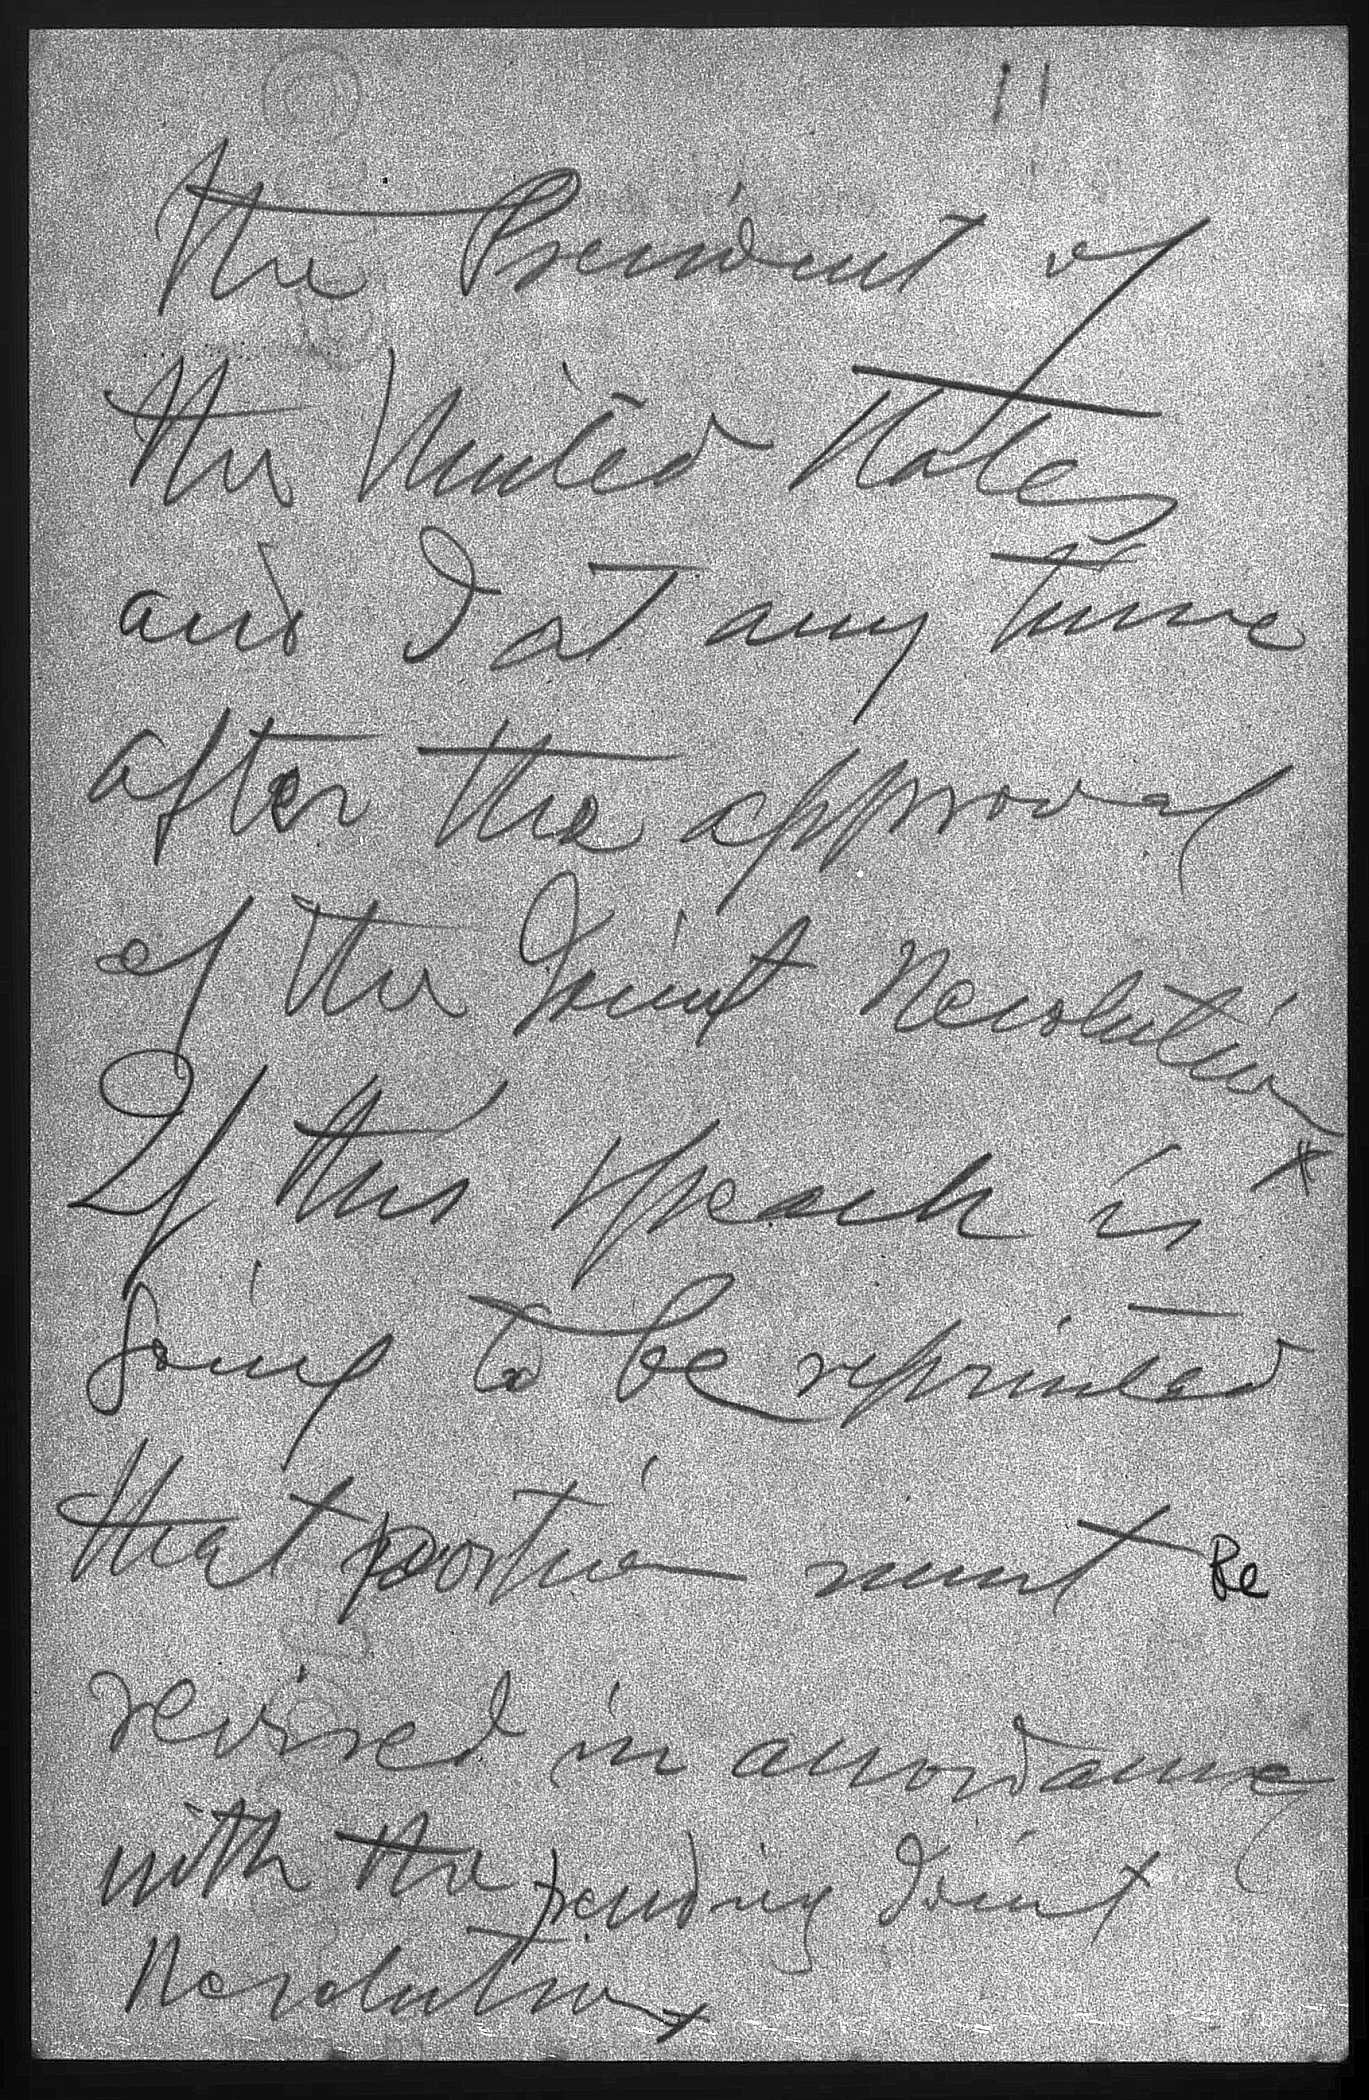 11
the President of
the United States
and I at any time
after the approval
of the Joint Resolution x
If this speach is
going to be reprinted
that portion must Be
revised in accordance
with the pending Joint
Resolution x